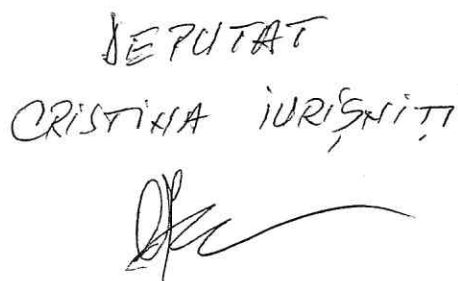 DEPUTAT
CRISTINA IURIȘNIȚI